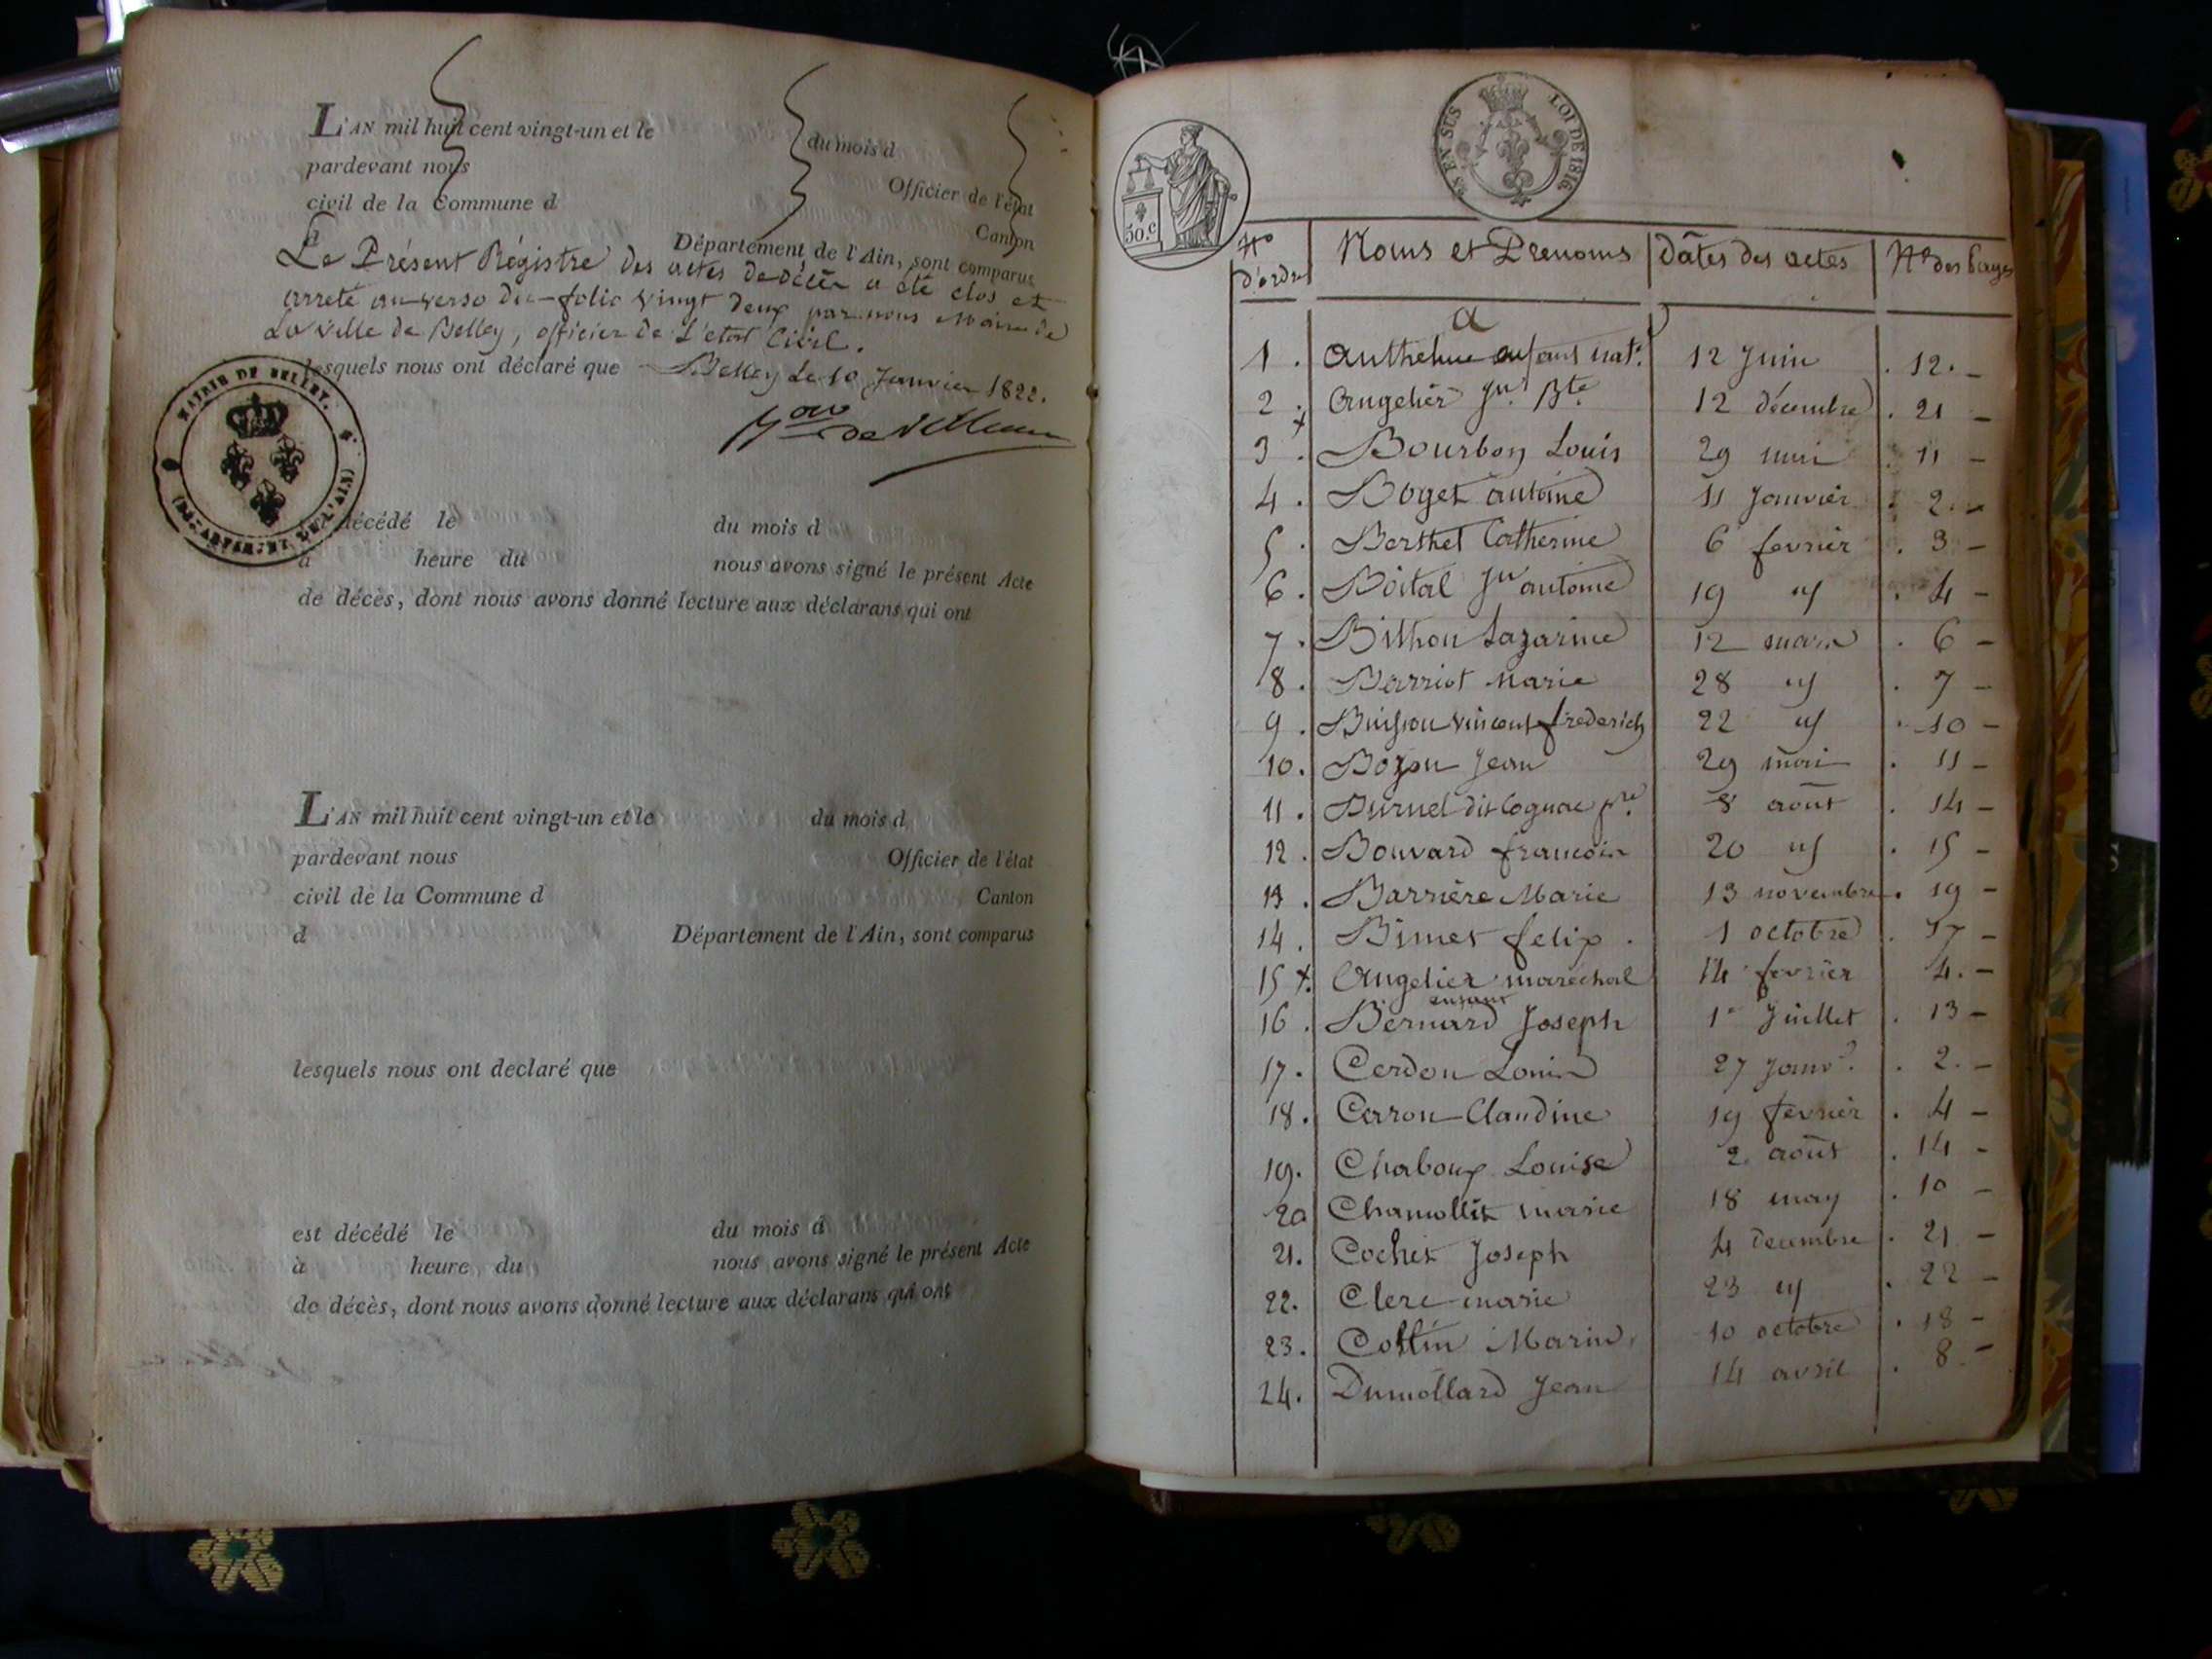 L'AN mil huit cent vingt-un et le du mois d
pardevant nous Officier de l'état
civil de la Commune d Canton
d Département de l'Ain, sont comparus
Le Présent Régistre des actes de décès a été clos et
arreté au verso du folio vingt deux par nous Maire de
La ville de Belley, officier de L'etat Civil.
lesquels nous ont déclaré que Belley Le 10 Janvier 1822.
MAIRIE DE BELLEY.
(DÉPARTEMENT DE L'AIN)
est décédé le du mois d
à heure du nous avons signé le présent Acte
de décès, dont nous avons donné lecture aux déclarans qui ont
L'AN mil huit cent vingt-un et le du mois d
pardevant nous Officier de l'état
civil de la Commune d Canton
d Département de l'Ain, sont comparus
lesquels nous ont declaré que
est décédé le du mois d
à heure du nous avons signé le présent Acte
de décès, dont nous avons donné lecture aux déclarans qui ont
50.c
EN SUS LOI DE 1816
No d'ordre Noms et Prenoms Dâtes des actes No des Pages
a
1. anthelme enfant nat. 12 Juin . 12. -
2. Augelier Jn Bte 12 décembre . 21 -
3. Bourbon Louis 29 mai . 11 -
4. Boget antoine 11 Janvier . 2. -
5. Berthet Catherine 6 fevrier . 3 -
6. Boital Jn antoine 19 id . 4 -
7. Bithou Lazarine 12 mars . 6 -
8. Barriot Marie 28 id . 7 -
9. Buisson vincent frederich 22 id . 10 -
10. Bozon Jean 29 mai . 11 -
11. Burnel dit Cognac pre 8 août . 14 -
12. Bouvard francois 20 id . 15 -
13. Barrière Marie 13 novembre . 19 -
14. Bimet felix. 1 octobre . 17 -
15 x. Augelier maréchal 14 fevrier 4. -
enfant
16. Bernard Joseph 1r Juillet . 13 -
17. Cerdon Louis 27 Janvr. . 2. -
18. Carron Claudine 19 fevrier . 4 -
19. Chaboux Louise 2 août . 14 -
20 Chamollit marie 18 may . 10 -
21. Cochet Joseph 4 decembre . 21 -
22. Clerc marie 23 id . 22 -
23. Cottin Marin 10 octobre . 18 -
24. Dumollard Jean 14 avril . 8. -